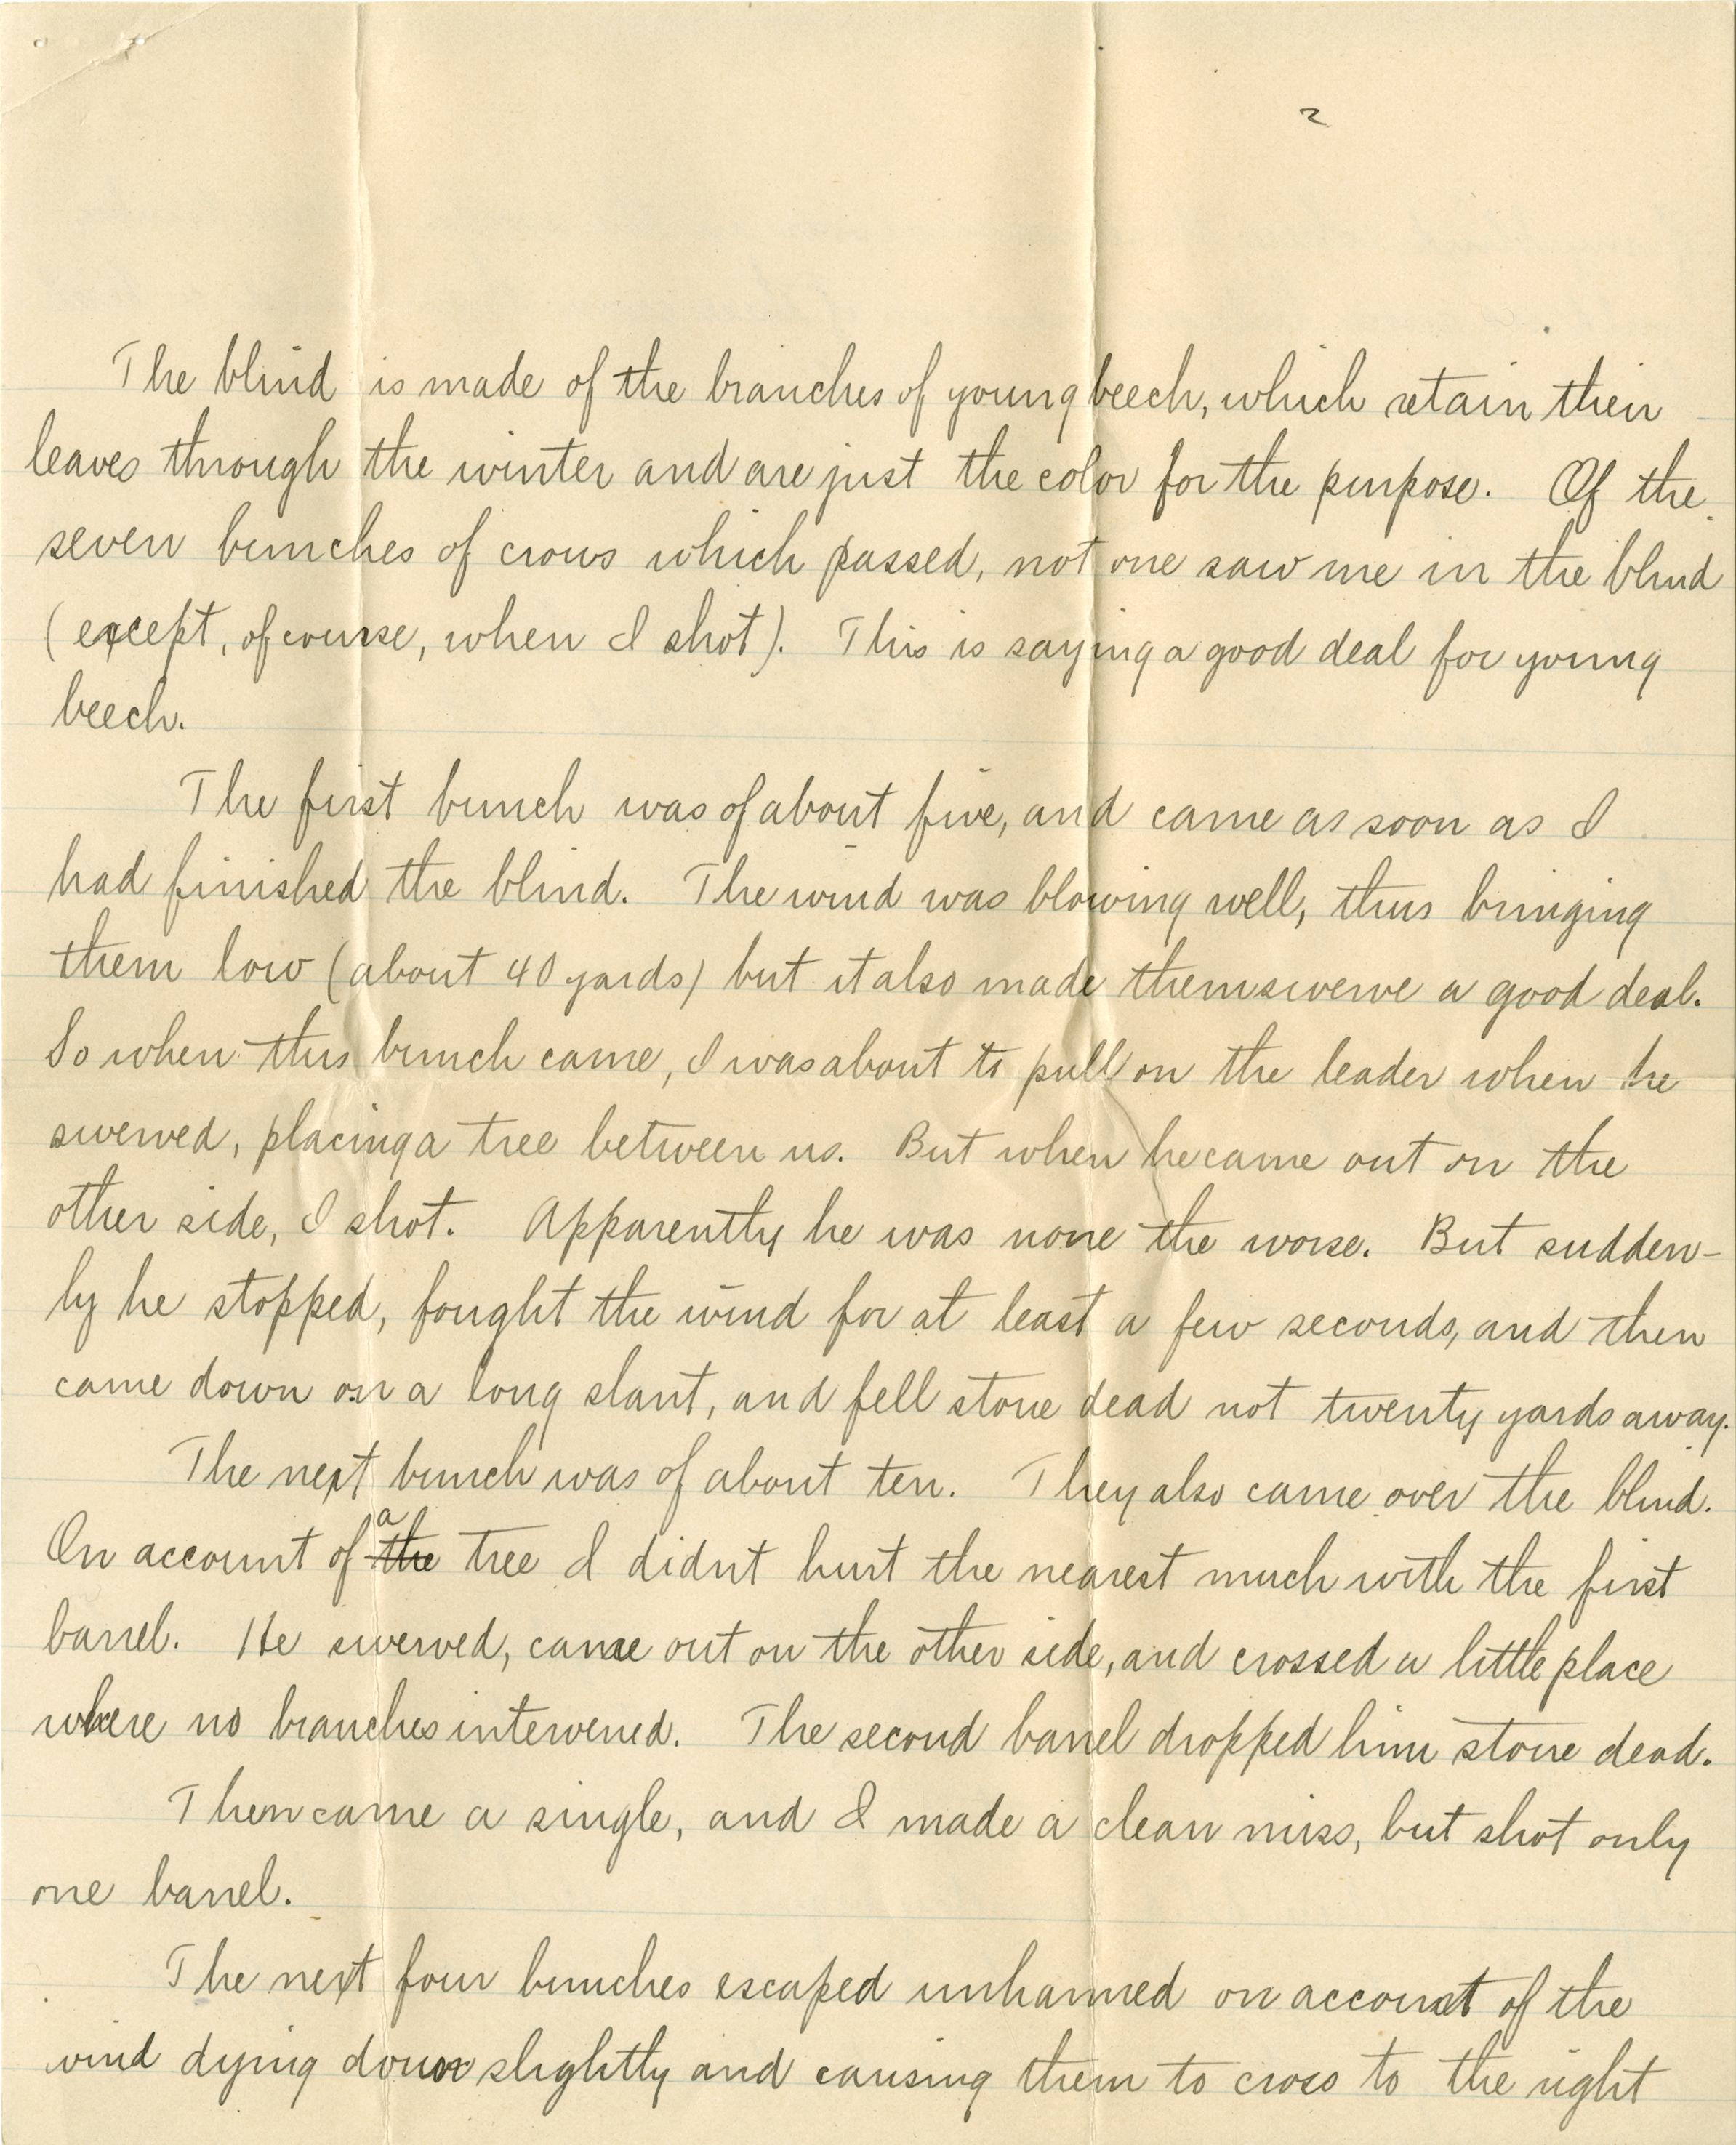 2
The blind is made of the branches of young beech, which retain their
leaves through the winter and are just the color for the purpose. Of the
seven bunches of crows which passed, not one saw me in the blind
(except, of course, when I shot). This is saying a good deal for young
beech.
The first bunch was of about five, and came as soon as I
had finished the blind. The wind was blowing well, thus bringing
them low (about 40 yards) but it also made them swerve a good deal.
So when this bunch came, I was about to pull on the leader when he
swerved, placing a tree between us. But when he came out on the
other side, I shot. Apparently he was none the worse. But sudden-
ly he stopped, fought the wind for at least a few seconds, and then
came down on a long slant, and fell stone dead not twenty yards away.
The next bunch was of about ten. They also came over the blind.
On account of the a tree I didnt hurt the nearest much with the first
barrel. He swerved, came out on the other side, and crossed a little place
where no branches intervened. The second barrel dropped him stone dead.
Then came a single, and I made a clean miss, but shot only
one barrel.
The next four bunches escaped unharmed on account of the
wind dying down slightly and causing them to cross to the right